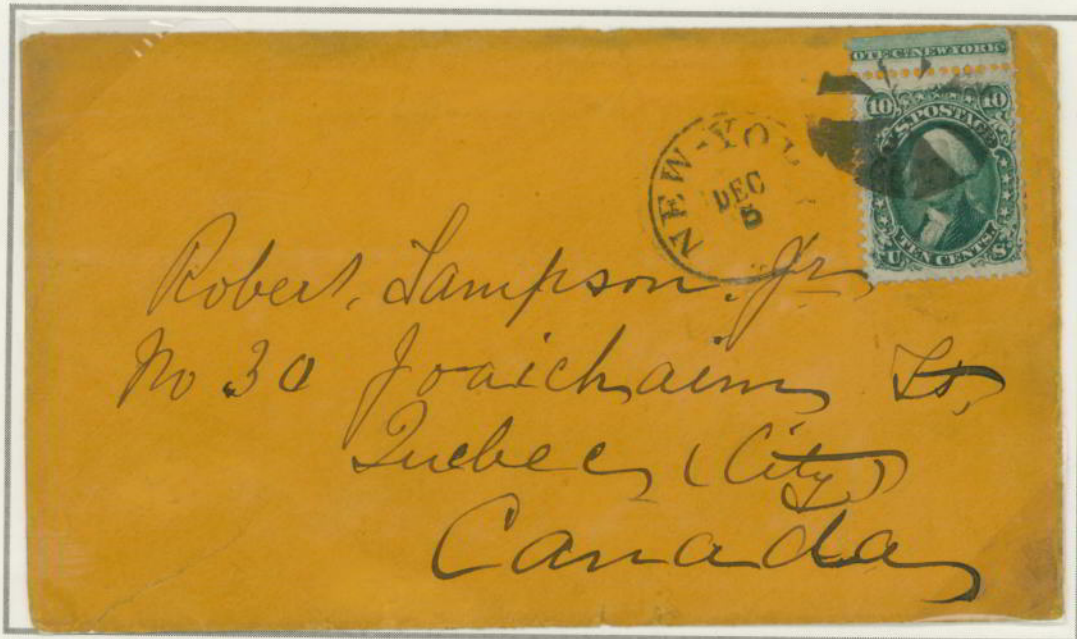 OTE Co. NEW YORK.
10 10
U.S. POSTAGE
TEN CENTS.
U S
NEW-YO
DEC
5
Robert. Sampson. Jr
No 30 Joaichaim St.
Quebec (City)
Canada